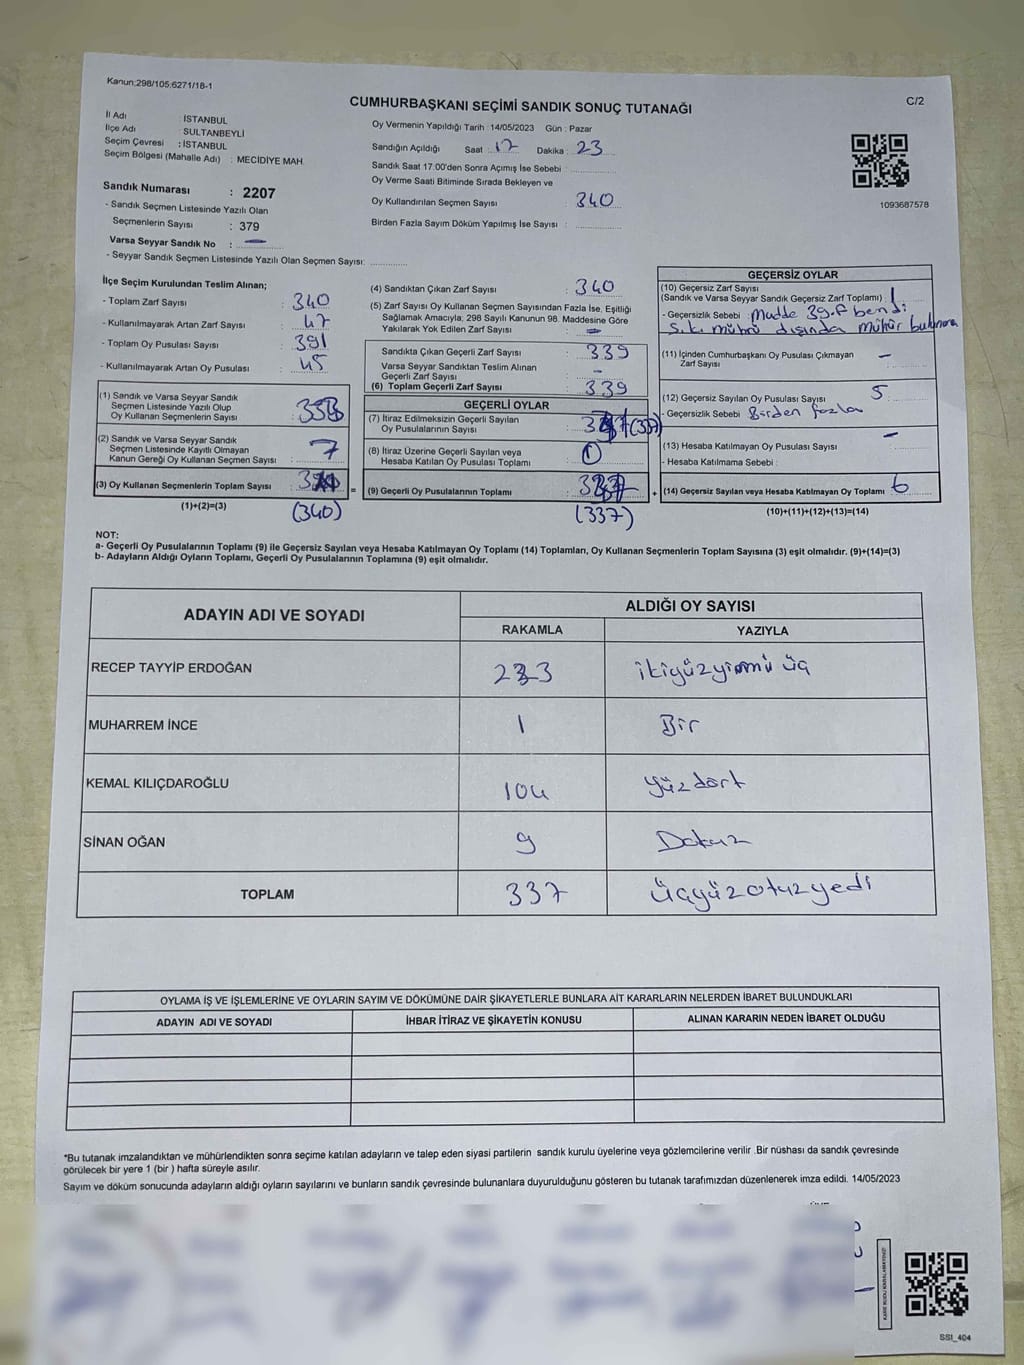 Kanun:298/105;6271/18-1
C/2
CUMHURBAŞKANI SEÇİMİ SANDIK SONUÇ TUTANAĞI
İl Adı : İSTANBUL
İlçe Adı : SULTANBEYLİ
Seçim Çevresi : İSTANBUL
Seçim Bölgesi (Mahalle Adı) : MECİDİYE MAH.
Sandık Numarası : 2207
- Sandık Seçmen Listesinde Yazılı Olan
Seçmenlerin Sayısı : 379
Varsa Seyyar Sandık No : —
- Seyyar Sandık Seçmen Listesinde Yazılı Olan Seçmen Sayısı:
Oy Vermenin Yapıldığı Tarih : 14/05/2023 Gün : Pazar
Sandığın Açıldığı Saat : 17 Dakika : 23
Sandık Saat 17:00'den Sonra Açımış İse Sebebi :
Oy Verme Saati Bitiminde Sırada Bekleyen ve
Oy Kullandırılan Seçmen Sayısı : 340
Birden Fazla Sayım Döküm Yapılmış İse Sayısı :
1093687578
İlçe Seçim Kurulundan Teslim Alınan;
- Toplam Zarf Sayısı : 340
- Kullanılmayarak Artan Zarf Sayısı : 47
- Toplam Oy Pusulası Sayısı : 391
- Kullanılmayarak Artan Oy Pusulası : 45
(1) Sandık ve Varsa Seyyar Sandık
Seçmen Listesinde Yazılı Olup
Oy Kullanan Seçmenlerin Sayısı :
(2) Sandık ve Varsa Seyyar Sandık
Seçmen Listesinde Kayıtlı Olmayan
Kanun Gereği Oy Kullanan Seçmen Sayısı : 7
(3) Oy Kullanan Seçmenlerin Toplam Sayısı :
(1)+(2)=(3) (340)
(4) Sandıktan Çıkan Zarf Sayısı : 340
(5) Zarf Sayısı Oy Kullanan Seçmen Sayısından Fazla İse, Eşitliği
Sağlamak Amacıyla; 298 Sayılı Kanunun 98. Maddesine Göre
Yakılarak Yok Edilen Zarf Sayısı : —
Sandıkta Çıkan Geçerli Zarf Sayısı : 339
Varsa Seyyar Sandıktan Teslim Alınan
Geçerli Zarf Sayısı : -
(6) Toplam Geçerli Zarf Sayısı : 339
GEÇERLİ OYLAR
(7) İtiraz Edilmeksizin Geçerli Sayılan
Oy Pusulalarının Sayısı : (337)
(8) İtiraz Üzerine Geçerli Sayılan veya
Hesaba Katılan Oy Pusulası Toplamı :
= (9) Geçerli Oy Pusulalarının Toplamı :
(337)
GEÇERSİZ OYLAR
(10) Geçersiz Zarf Sayısı
(Sandık ve Varsa Seyyar Sandık Geçersiz Zarf Toplamı) : 1
- Geçersizlik Sebebi : Madde 39.f bendi
s.k. mührü dışında mühür bulunma
(11) İçinden Cumhurbaşkanı Oy Pusulası Çıkmayan —
Zarf Sayısı
(12) Geçersiz Sayılan Oy Pusulası Sayısı : 5
- Geçersizlik Sebebi : Birden fazla
(13) Hesaba Katılmayan Oy Pusulası Sayısı : —
- Hesaba Katılmama Sebebi :
+ (14) Geçersiz Sayılan veya Hesaba Katılmayan Oy Toplamı : 6
(10)+(11)+(12)+(13)=(14)
NOT:
a- Geçerli Oy Pusulalarının Toplamı (9) ile Geçersiz Sayılan veya Hesaba Katılmayan Oy Toplamı (14) Toplamları, Oy Kullanan Seçmenlerin Toplam Sayısına (3) eşit olmalıdır. (9)+(14)=(3)
b- Adayların Aldığı Oyların Toplamı, Geçerli Oy Pusulalarının Toplamına (9) eşit olmalıdır.
ADAYIN ADI VE SOYADI
ALDIĞI OY SAYISI
RAKAMLA YAZIYLA
RECEP TAYYİP ERDOĞAN 223 ikiyüzyirmi üç
MUHARREM İNCE 1 Bir
KEMAL KILIÇDAROĞLU 104 Yüzdört
SİNAN OĞAN 9 Dokuz
TOPLAM 337 üçyüzotuzyedi
OYLAMA İŞ VE İŞLEMLERİNE VE OYLARIN SAYIM VE DÖKÜMÜNE DAİR ŞİKAYETLERLE BUNLARA AİT KARARLARIN NELERDEN İBARET BULUNDUKLARI
ADAYIN ADI VE SOYADI İHBAR İTİRAZ VE ŞİKAYETİN KONUSU ALINAN KARARIN NEDEN İBARET OLDUĞU
*Bu tutanak imzalandıktan ve mühürlendikten sonra seçime katılan adayların ve talep eden siyasi partilerin sandık kurulu üyelerine veya gözlemcilerine verilir .Bir nüshası da sandık çevresinde
görülecek bir yere 1 (bir ) hafta süreyle asılır.
Sayım ve döküm sonucunda adayların aldığı oyların sayılarını ve bunların sandık çevresinde bulunanlara duyurulduğunu gösteren bu tutanak tarafımızdan düzenlenerek imza edildi. 14/05/2023
SSI_404